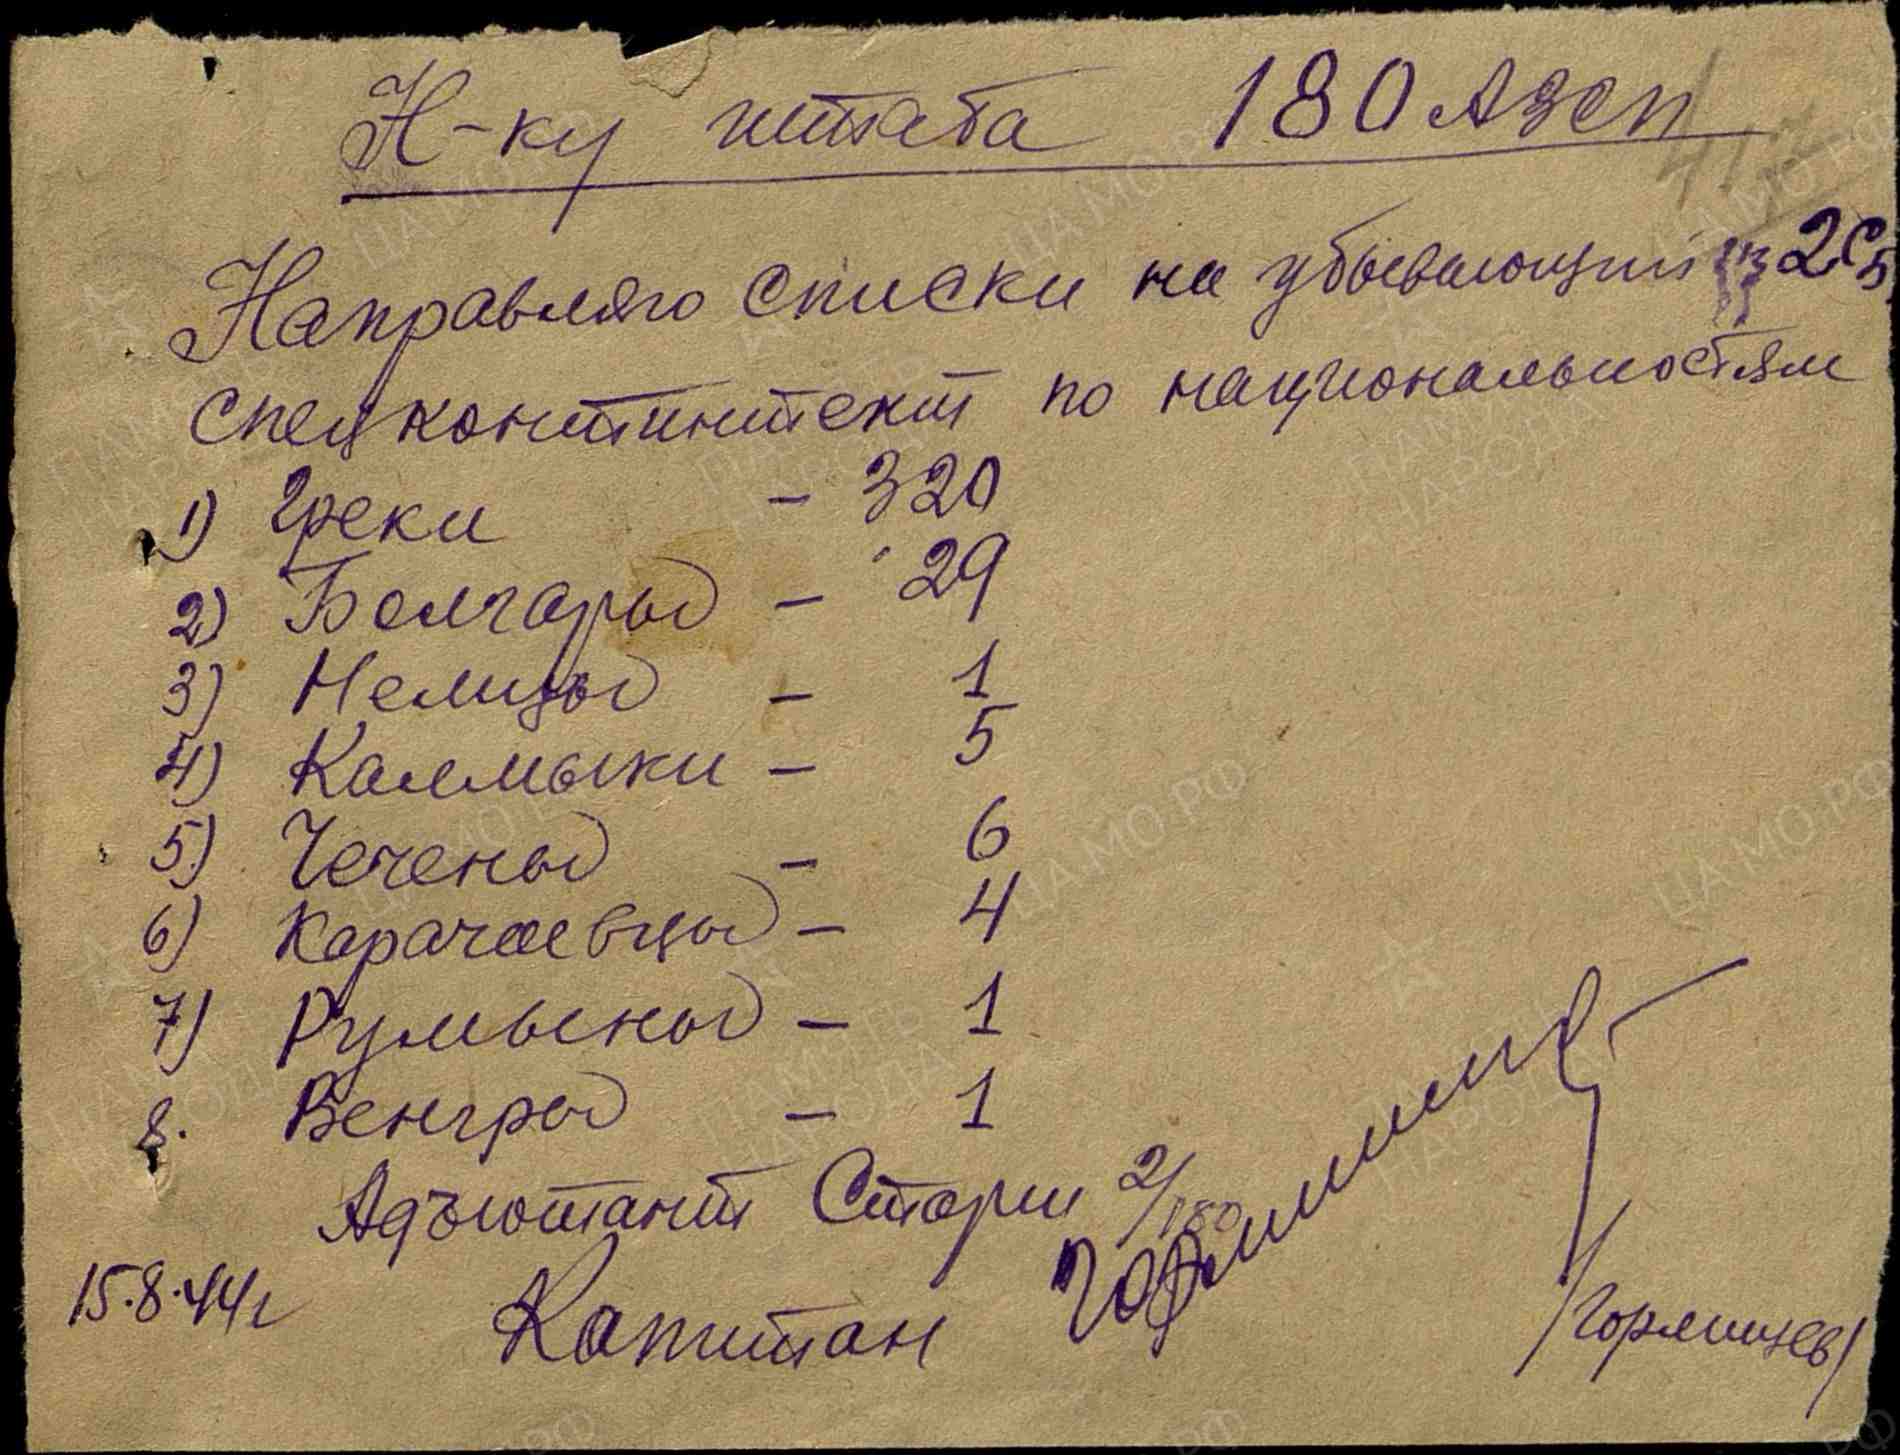 Н-ку штаба 180 АЗСП
Направляю списки на убывающий из 2 СБ
спецконтингент по национальностям
1) Греки - 320
2) Болгары - 29
3) Немцы - 1
4) Калмыки - 5
5) Чечены - 6
6) Карачаевцы - 4
7) Румыны - 1
8. Венгры - 1
Адъютант Старш 2/180
15.8.44г Капитан
/Горлищев/